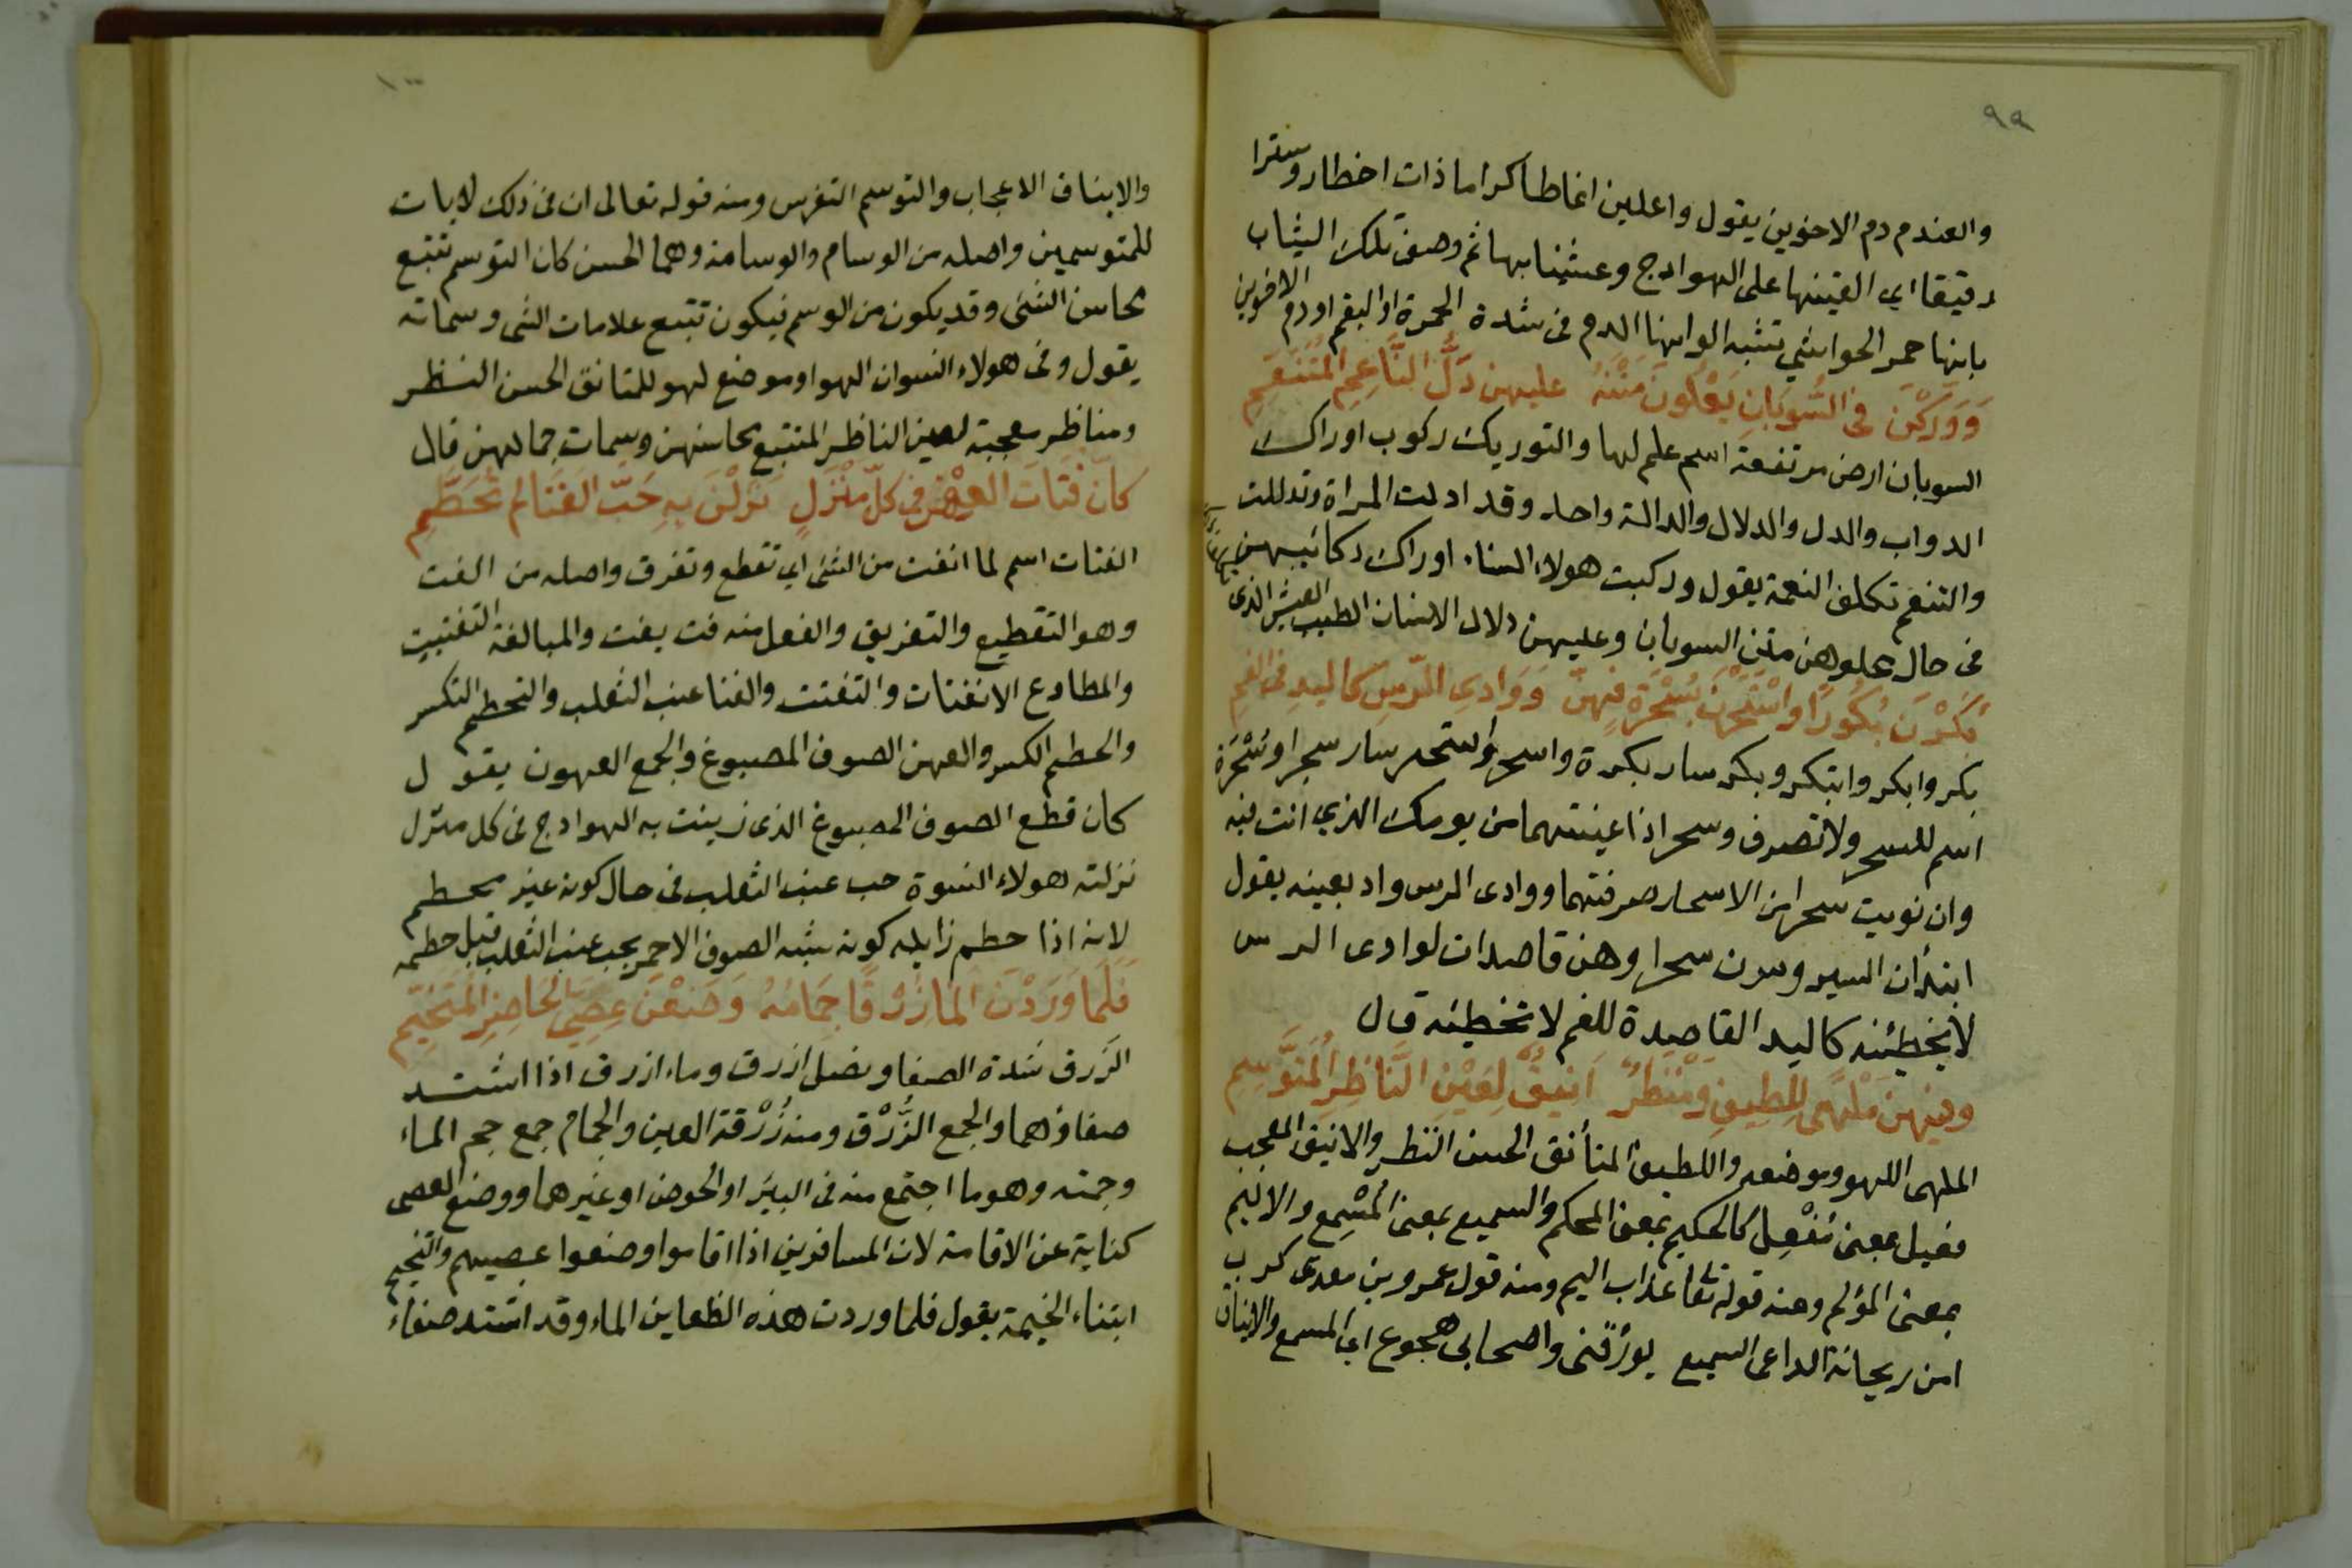 ٩٩
والعندم دم الاخوين يقول واعلين انماطا كراما ذات اخطار وسترا
رقيقا اي القينها على الهوادج وغشينها بها ثم وصف تلك الثياب
بانها حمر الحواشي تشبه الوانها الدم في شدة الحمرة او البقم او دم الاخوين
وَوَرَّكْنَ في السُّوبَانِ يَعْلُونَ مَتْنَهُ عليهن دَلُّ النَّاعِمِ المُتَنَعِّمِ
السوبان ارض مرتفعة اسم علم لها والتوريك ركوب اوراك
الدواب والدل والدلال والدالة واحد وقد ادلت المراة وتدللت
والتنعم تكلف النعمة يقول وركبت هولاء النساء اوراك ركائبهن
في حال علوهن متن السوبان وعليهن دلال الانسان الطيب العيش الذي
بَكَرْنَ بُكُورًا وَاسْتَحَرْنَ بِسُحْرَةٍ فهنّ وَوَادِي الرّسِّ كاليد في الفمِ
بكر وابكر وابتكر وبكر سار بكرة واسحر واستحر سار سحرا وسُحْرَة
اسم للسحر ولا تصرف وسحر اذا عينتهما من يومك الذي انت فيه
وان نويت سحرا من الاسحار صرفتهما ووادى الرس واد بعينه يقول
ابتدأن السير وسرن سحرا وهن قاصدات لوادى الرس
لا يخطئنه كاليد القاصدة للفم لا تخطئه قال
وفيهن مَلْهًى لِلطيفِ وَمَنْظَرٌ اَنِيقٌ لِعَيْنِ النَّاظِرِ المُتَوَسِّمِ
الملهى اللهو وموضعه واللطيف المتأنق الحسن النظر والانيق المعجب
فعيل بمعنى مُفْعِل كالحكيم بمعنى المحكم والسميع بمعنى المُسْمِع والاليم
بمعنى المؤلم ومنه قوله تعا عذاب اليم ومنه قول عمرو بن معدى كرب
امن ريحانة الداعى السميع يورّقنى واصحابى هجوع اي المسمع والايناق
١٠٠
والايناق الاعجاب والتوسم التفرس ومنه قوله تعالى ان في ذلك لايات
للمتوسمين واصله من الوسام والوسامة وهما الحسن كان التوسم تتبع
محاسن الشئ وقد يكون من الوسم فيكون تتبع علامات الشى وسماته
يقول وفي هولاء النسوان لهو او موضع لهو للمتانق الحسن النظر
ومناظر معجبة لعين الناظر المتتبع محاسنهن وسمات جمالهن قال
كانّ فُتَاتَ العِهْنِ في كلّ مَنْزِلٍ نَزَلْنَ بِهِ حَبّ الفَنَا لم تُحَطَّمِ
الفتات اسم لما انفت من الشئ اي تقطع وتفرق واصله من الفت
وهو التقطيع والتفريق والفعل منه فت يفت والمبالغة التفتيت
والمطاوع الانفتات والتفتت والفنا عنب الثعلب والتحطم التكسر
والحطم الكسر والعهن الصوف المصبوغ والجمع العهون يقول
كان قطع الصوف المصبوغ الذى زينت به الهوادج في كل منزل
نزلته هولاء النسوة حب عنب الثعلب في حال كونه غير محطم
لانه اذا حطم زايله كونه شبه الصوف الاحمر بحب عنب الثعلب قبل حطمه
فَلَمَّا وَرَدْنَ المَا زُرْقًا جِمَامُهُ وَضَعْنَ عِصِيَّ الحَاضِرِ المُتَخَيِّمِ
الزرق شدة الصفا ونصل ازرق وماء ازرق اذا اشتد
صفاؤهما والجمع الزُّرْق ومنه زُرْقة العين والجمام جمع جم الماء
وجمته وهو ما اجتمع منه في البير او الحوض او غيرهما ووضع العصى
كناية عن الاقامة لان المسافرين اذا اقاموا وضعوا عصيهم والتخيم
ابتناء الخيمة يقول فلما وردت هذه الظعاين الماء وقد اشتد صفاء